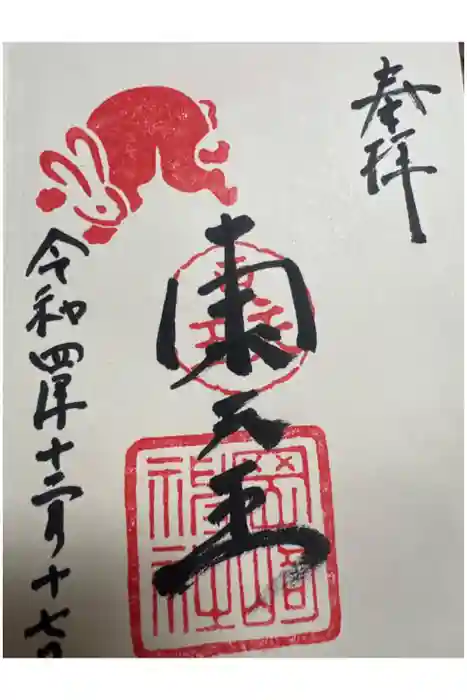 奉拝
東天王
岡崎
神社
令和四年十二月十七日